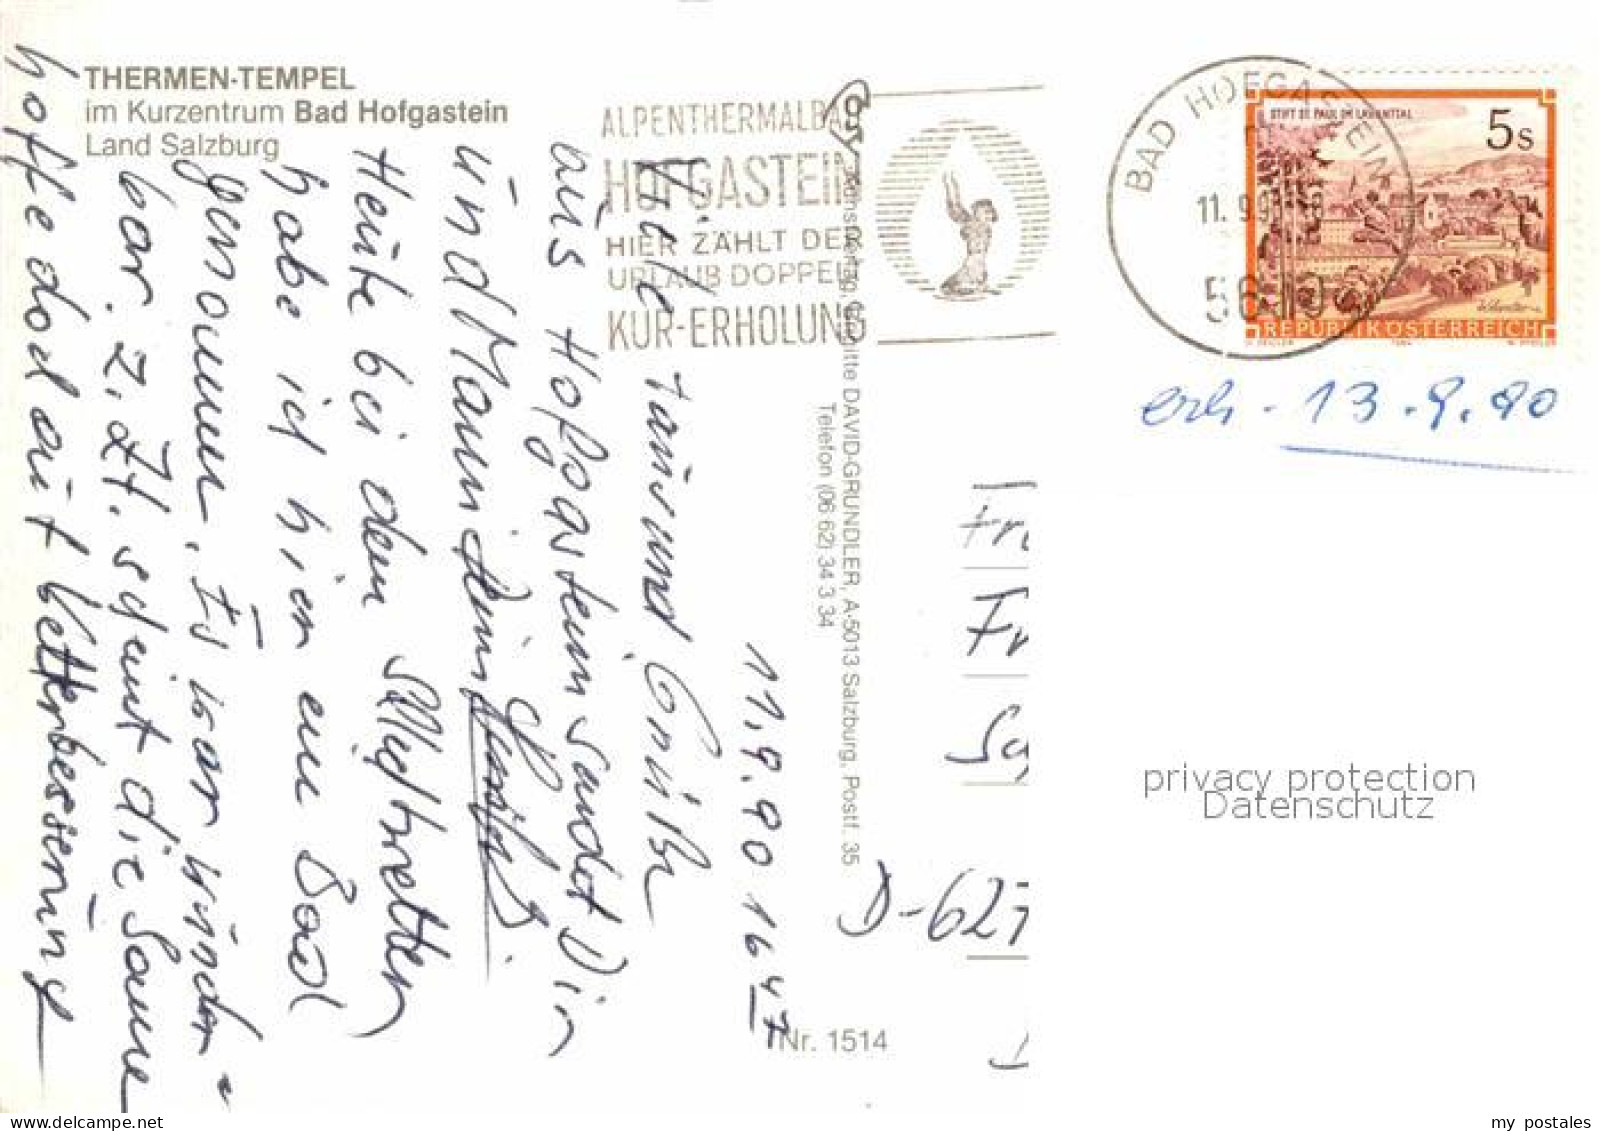 THERMEN-TEMPEL
im Kurzentrum Bad Hofgastein
Land Salzburg
ALPENTHERMALBAD
HOFGASTEIN
HIER ZÄHLT DER
URLAUB DOPPELT
KUR-ERHOLUNG
BAD HOFGASTEIN
11.9.9
5630
STIFT ST. PAUL IM LAVANTTAL
5s
REPUBLIK ÖSTERREICH
erh. 13.9.90
11.9.90 16 47
Viele tausend Grüße
aus Hofgastein sendet Dir
und Mann
Heute bei dem
habe ich hier ein Bad
genommen. Es war wunder-
bar. z. Zt. scheint die Sonne
hoffe doch auf Wetterbesserung
Brigitte DAVID-GRÜNDLER, A-5013 Salzburg, Postf. 35
Telefon (06 62) 34 3 34
Nr. 1514
Fr
D-627
privacy protection
Datenschutz
delcampe.net
my_postales